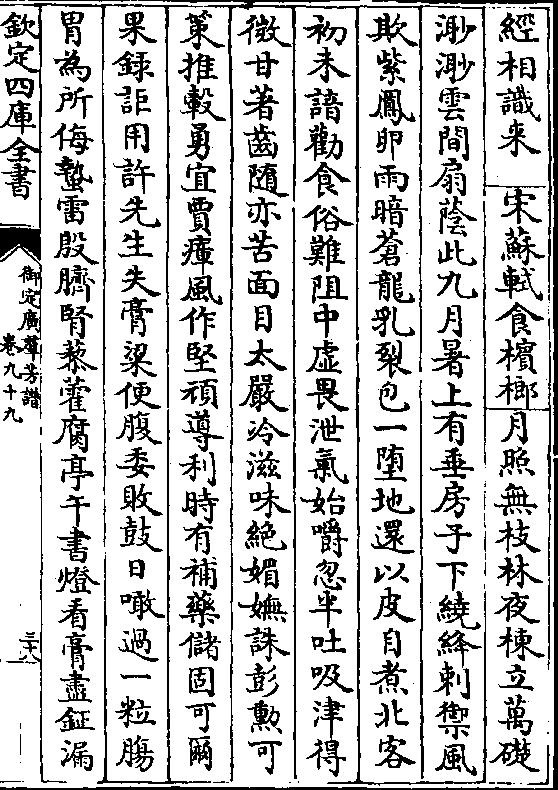 經相識来　宋蘇軾食檳榔月照無枝林夜棟立萬礎
渺渺雲間扇蔭此九月暑上有垂房子下繞絳刺禦風
欺紫鳳卵雨暗蒼龍乳裂包一墮地還以皮自煮北客
初未諳勸食俗難阻中虛畏泄氣始嚼忽半吐吸津得
微甘著齒随亦苦面目太嚴冷滋味絶媚嫵誅彭勲可
策推轂勇宜賈瘴風作堅頑導利時有補藥儲固可爾
果録詎用許先生失膏粱便腹委敗鼓日噉過一粒腸
胃為所侮蟄雷殷臍腎藜藿腐亭午書燈看膏盡鉦漏
欽定四庫全書
御定廣羣芳譜
卷九十九
三十八